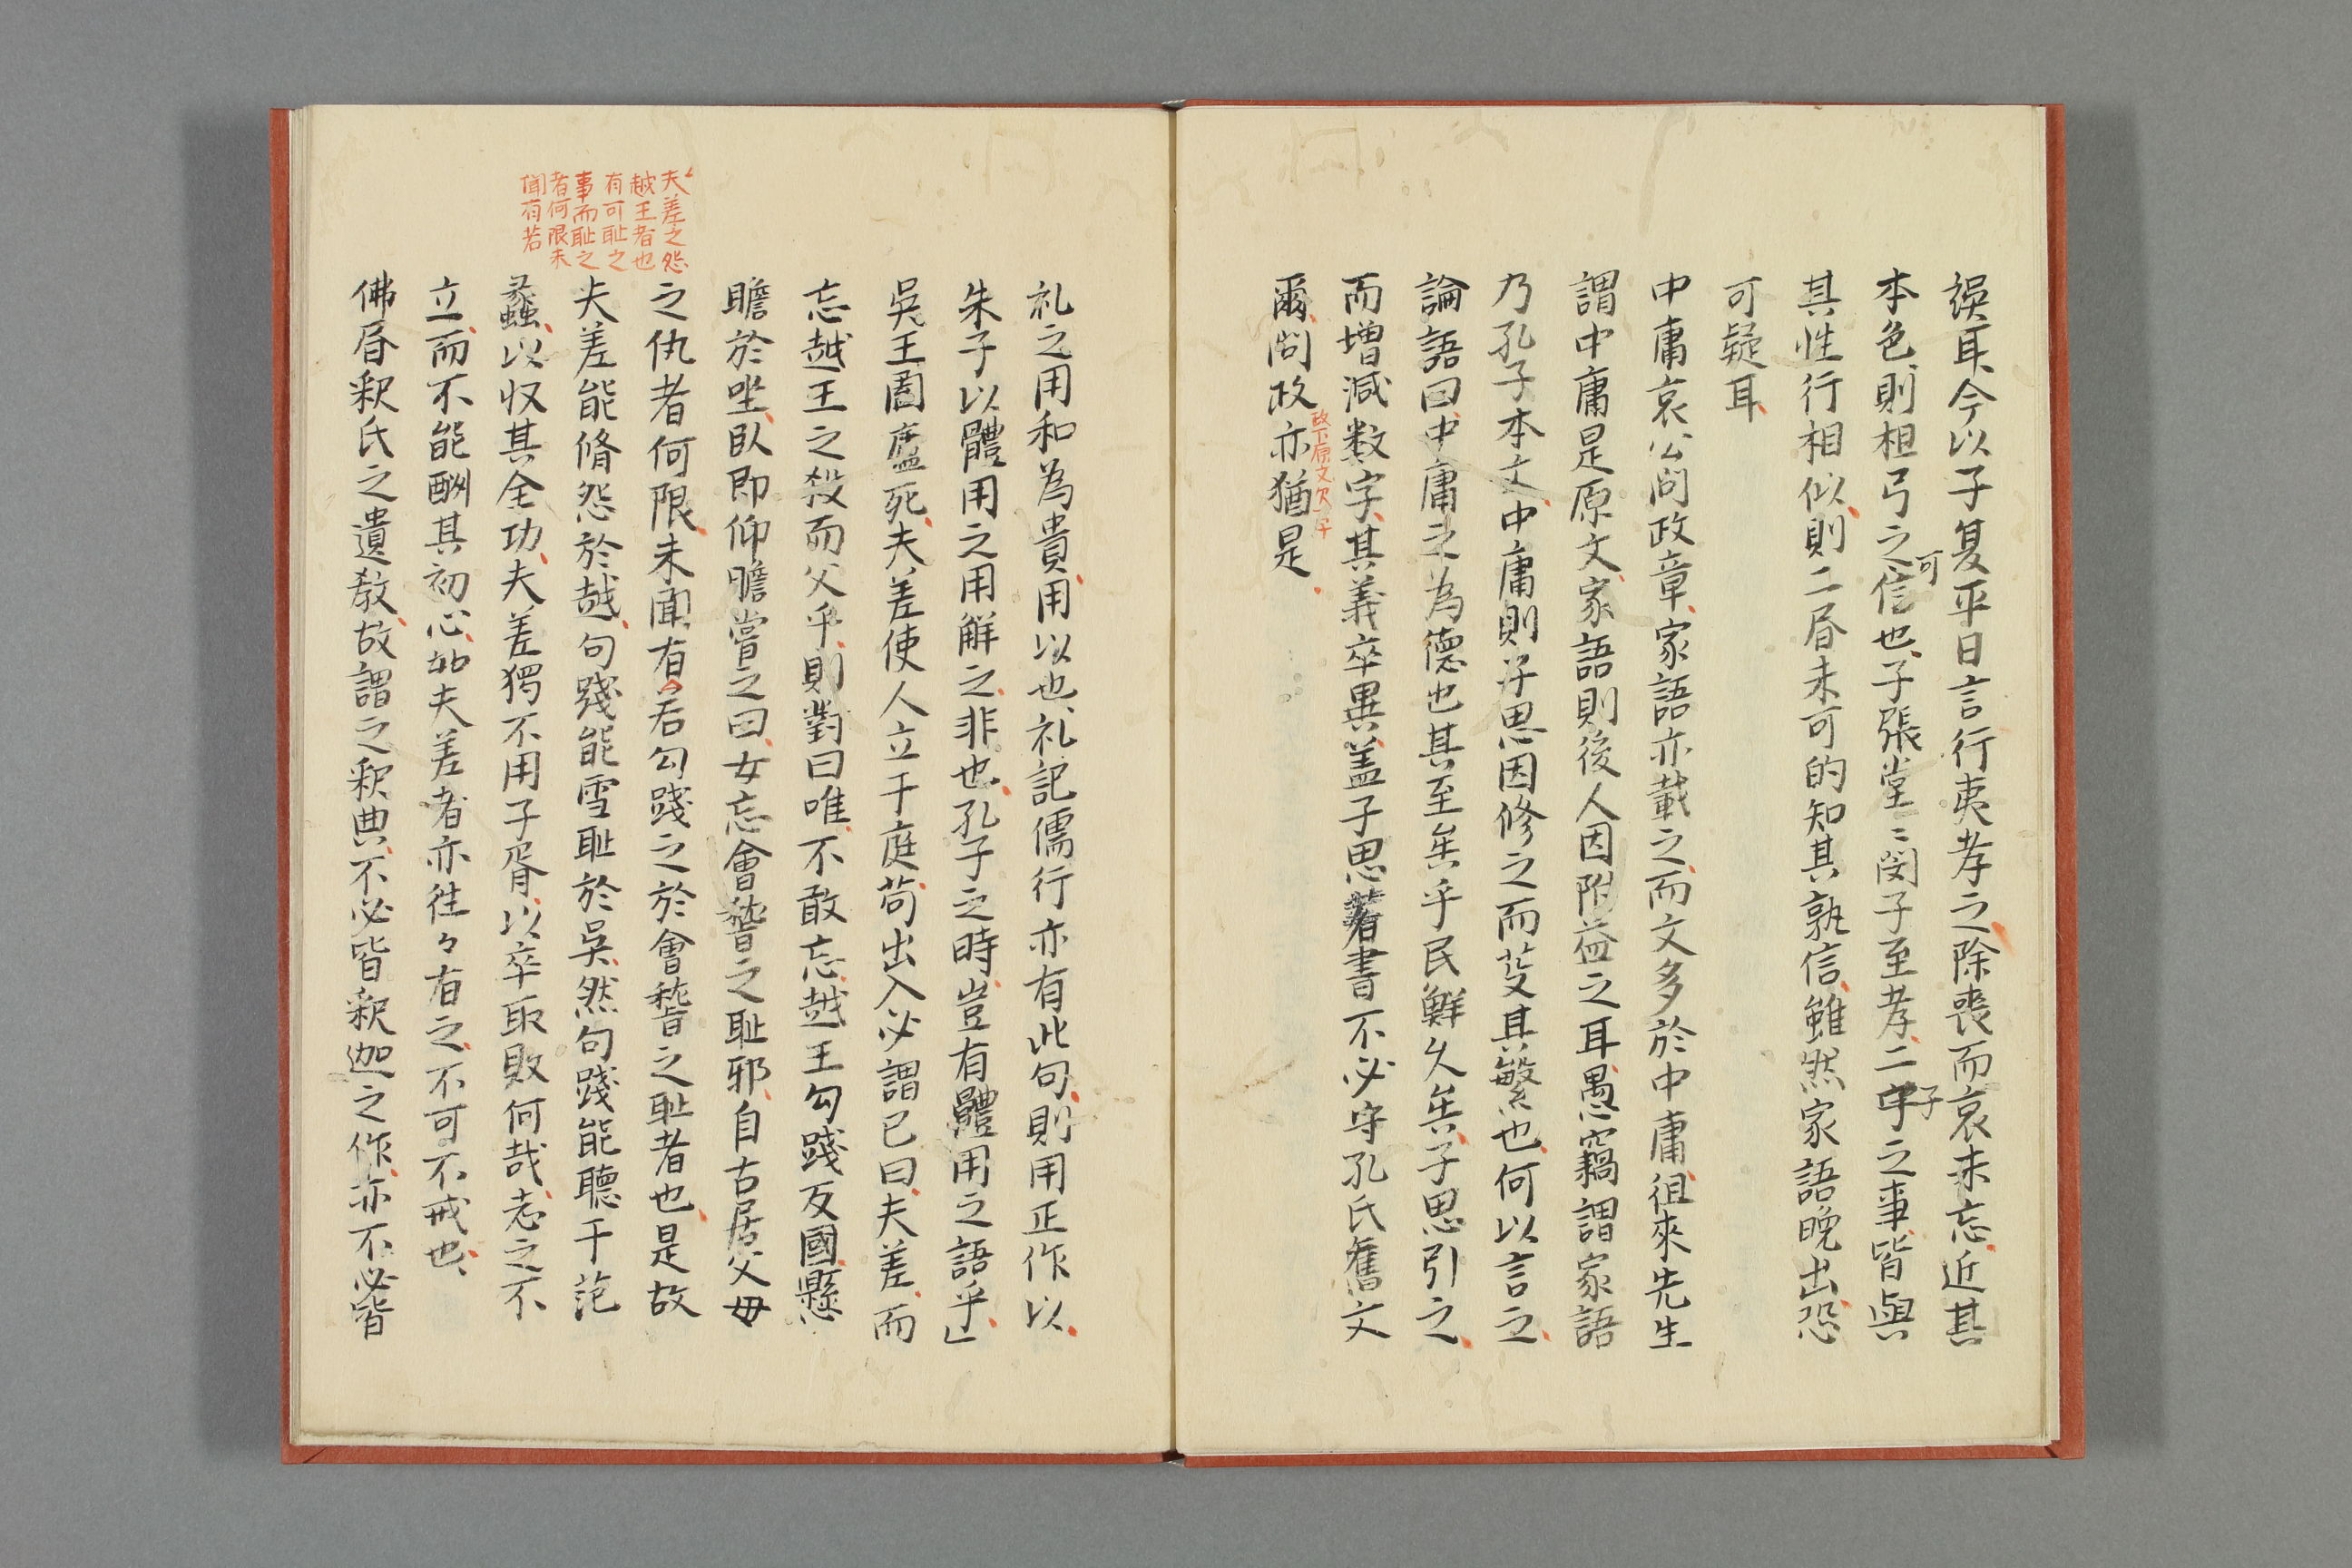 誤耳今以子夏平日言行夷考之除喪而哀未忘近其
本色則柤弓之信也子張堂〻閔子至孝二字之事皆與
可
子
其性行相似則二昏未可的知其孰信雖然家語晚出恐
可疑耳
中庸哀公問政章家語亦載之而文多於中庸徂來先生
謂中庸是原文家語則後人因附益之耳愚竊謂家語
乃孔子本文中庸則子思因修之而芟其繁也何以言之
論語曰中庸之為德也其至矣乎民鮮久矣子思引之
而増減数字其義卒異盖子思著書不必守孔氏舊文
爾問政亦猶是
政下原文欠字
礼之用和為貴用以也礼記儒行亦有此句則用正作以
朱子以體用之用解之非也孔子之時豈有體用之語乎
吳王闔廬死夫差使人立于庭苟出入必謂已曰夫差而
忘越王之殺而父乎則對曰唯不敢忘越王勾踐反國懸
瞻於坐臥即仰瞻嘗之曰女忘會稽之耻邪自古居父毋
之仇者何限未聞有若勾踐之於會稽之耻者也是故
夫差能脩怨於越句踐能雪耻於吳然句踐能聽于范
蠡以収其全功夫差獨不用子胥以卒取敗何哉志之不
立而不能酬其初心如夫差者亦徃々有之不可不戒也
佛昏釈氏之遺教故謂之釈典不必皆釈迦之作亦不必皆
夫差之怨
越王者也
有可耻之
事而耻之
者何限未
聞有若